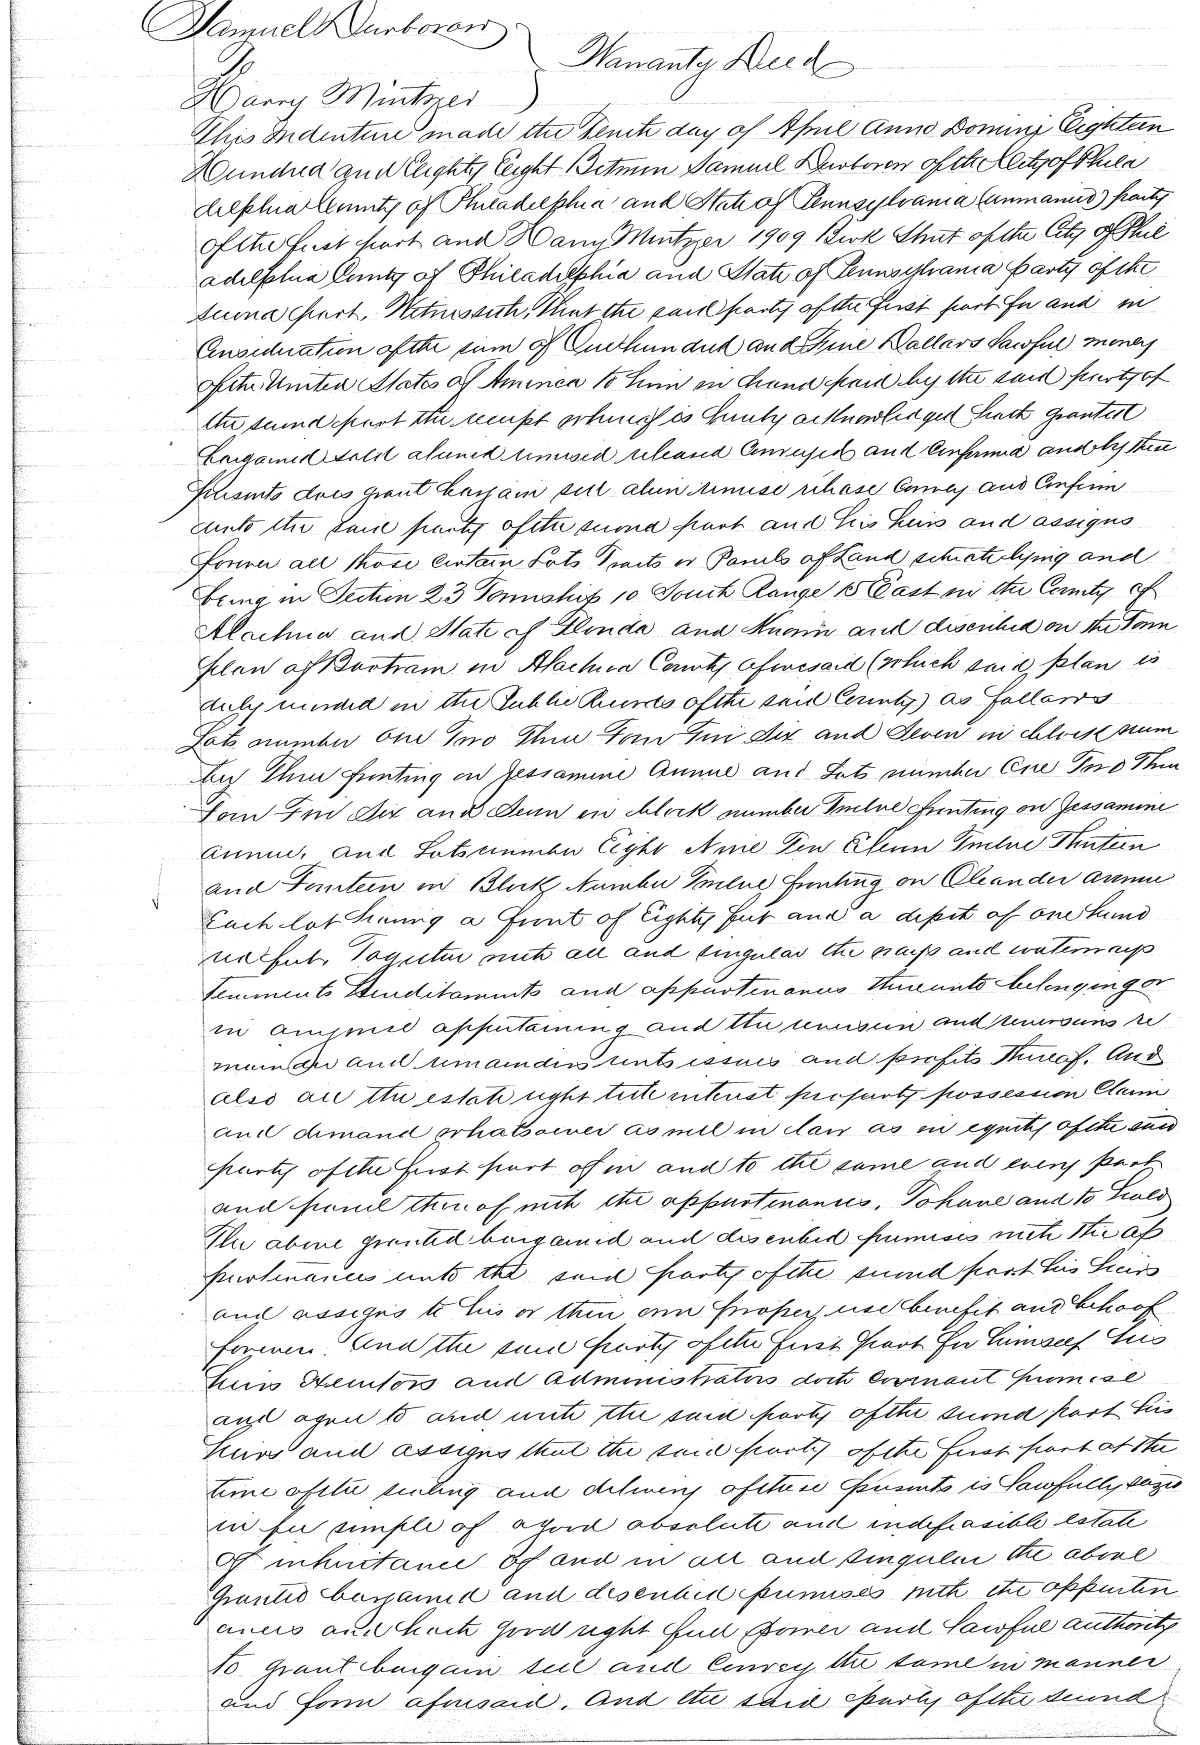 Samuel Durborow
Warranty Deed
Harry Mintzer
This Indenture made the Tenth day of April Anno Domini Eighteen
Hundred and Eighty Eight Between Samuel Durborow of the City of Phila
delphia County of Philadelphia and State of Pennsylvania (unmarried) party
of the first part and Harry Mintzer 1909 Berk Street of the City of Phil
adelphia County of Philadelphia and State of Pennsylvania party of the
second part. Witnesseth, That the said party of the first part for and in
Consideration of the sum of One hundred and Five Dollars Lawful money
of the United States of America to him in hand paid by the said party of
the second part the receipt whereof is hereby acknowledged hath granted
bargained sold aliened remised released Conveyed and Confirmed and by these
presents does grant bargain sell alien remise release Convey and Confirm
unto the said party of the second part and his heirs and assigns
forever all those certain Lots Tracts or Parcels of Land situate lying and
being in Section 23 Township 10 South Range 18 East in the County of
Alachua and State of Florida and Known and described on the Town
plan of Bartram in Alachua County aforesaid (which said plan is
duly recorded in the Public Records of the said County) as follows
Lots number One Two Three Four Five Six and Seven in block num
ber Three fronting on Jessamine Avenue and Lots number One Two Three
Four Five Six and Seven in block number Twelve fronting on Jessamine
avenue, and Lots number Eight Nine Ten Eleven Twelve Thirteen
and Fourteen in Block Number Twelve fronting on Oleander avenue
Each lot having a front of Eighty feet and a depth of one hund
red feet. Together with all and singular the ways and waterways
tenements Hereditaments and appurtenances thereunto belonging or
in anywise appertaining and the reversion and reversions re
mainder and remainders rents issues and profits thereof. And
also all the estate right title interest property possession Claim
and demand whatsoever as well in law as in equity of the said
party of the first part of in and to the same and every part
and parcel thereof with the appurtenances. To have and to hold
The above granted bargained and described premises with the ap
purtenances unto the said party of the second part his heirs
and assigns to his or their own proper use benefit and behoof
forever. And the said party of the first part for himself his
heirs Executors and administrators doth covenant promise
and agree to and with the said party of the second part his
heirs and assigns that the said party of the first part at the
time of the sealing and delivery of these presents is Lawfully seized
in fee simple of a good absolute and indefeasible estate
of inheritance of and in all and singular the above
granted bargained and described premises with the appurten
ances and hath good right full power and lawful authority
to grant bargain sell and Convey the same in manner
and form aforesaid. And the said party of the second